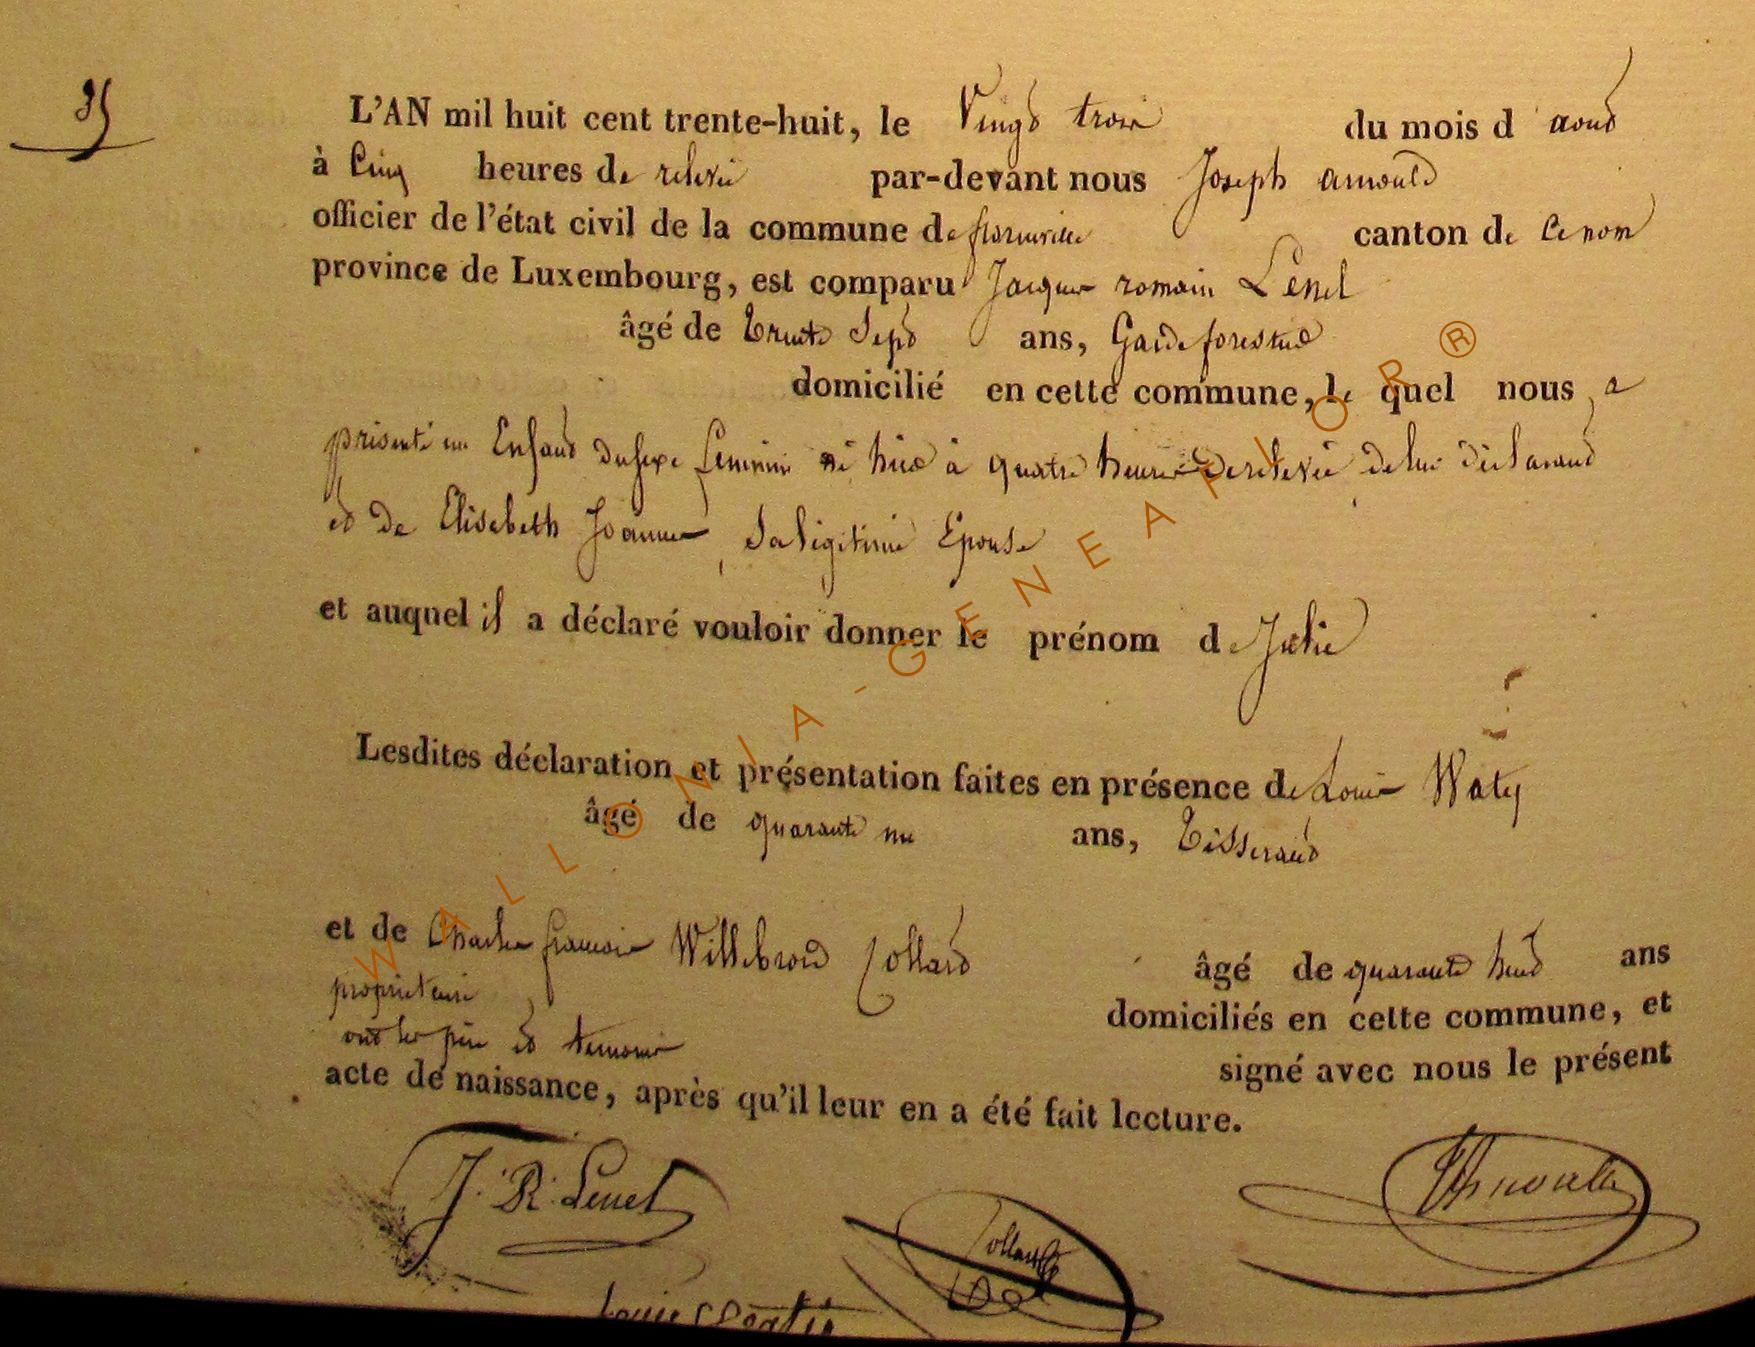 35
L'AN mil huit cent trente-huit, le Vingt trois du mois d aout
à Cinq heures de relevée par-devant nous Joseph arnould
officier de l'état civil de la commune de florenville canton de Ce nom
province de Luxembourg, est comparu Jacques romain Lenel
âgé de trente Sept ans, Garde forestier
domicilié en cette commune, le quel nous a
présenté un Enfant du sexe feminin né hier à quatre heures de relevée de lui déclarant
et de Elisebeth Joannes, Sa légitime Epouse
et auquel il a déclaré vouloir donner le prénom de Julie
Lesdites déclaration et présentation faites en présence de Louis Waty
âgé de quarante un ans, Tisserand
et de Charles francois Willebrord Collard âgé de quarante huit ans
propriétaire domiciliés en cette commune, et
ont les père et temoins signé avec nous le présent
acte de naissance, après qu'il leur en a été fait lecture.
J. R. Lenel
Collard
Arnould
Louis Watÿ
WALLONIA-GENEAFLOR ®